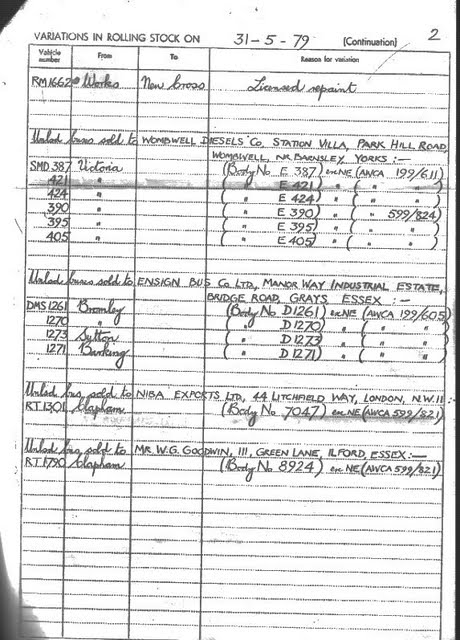 VARIATIONS IN ROLLING STOCK ON 31-5-79 (Continuation) 2
Vehicle number From To Reason for variation
RM1662 Works New Cross Licensed repaint
Unlicd buses sold to WOMBWELL DIESELS Co, STATION VILLA, PARK HILL ROAD,
WOMBWELL, NR BARNSLEY YORKS :—
SMD 387 Victoria (Body No E 387) ex NE (AWCA 199/611)
421 " ( " E 421) " ( " " )
424 " ( " E 424) " ( " " )
390 " ( " E 390) " ( " 599/824)
395 " ( " E 395) " ( " " )
405 " ( " E 405) " ( " " )
Unlicd buses sold to ENSIGN BUS Co LTD, MANOR WAY INDUSTRIAL ESTATE,
BRIDGE ROAD, GRAYS ESSEX :—
DMS 1261 Bromley (Body No D1261) ex NE (AWCA 199/605)
1270 " ( " D1270) " ( " " )
1273 Sutton ( " D1273) " ( " " )
1271 Barking ( " D1271) " ( " " )
Unlicd bus, sold to NIBA EXPORTS LTD, 44 LITCHFIELD WAY, LONDON, N.W.11 :-
RT1301 Clapham (Body No 7047) ex NE (AWCA 599/821)
Unlicd bus, sold to MR. W.G. GOODWIN, 111, GREEN LANE, ILFORD, ESSEX :—
RT1790 Clapham (Body No 8924) ex NE (AWCA 599/821)